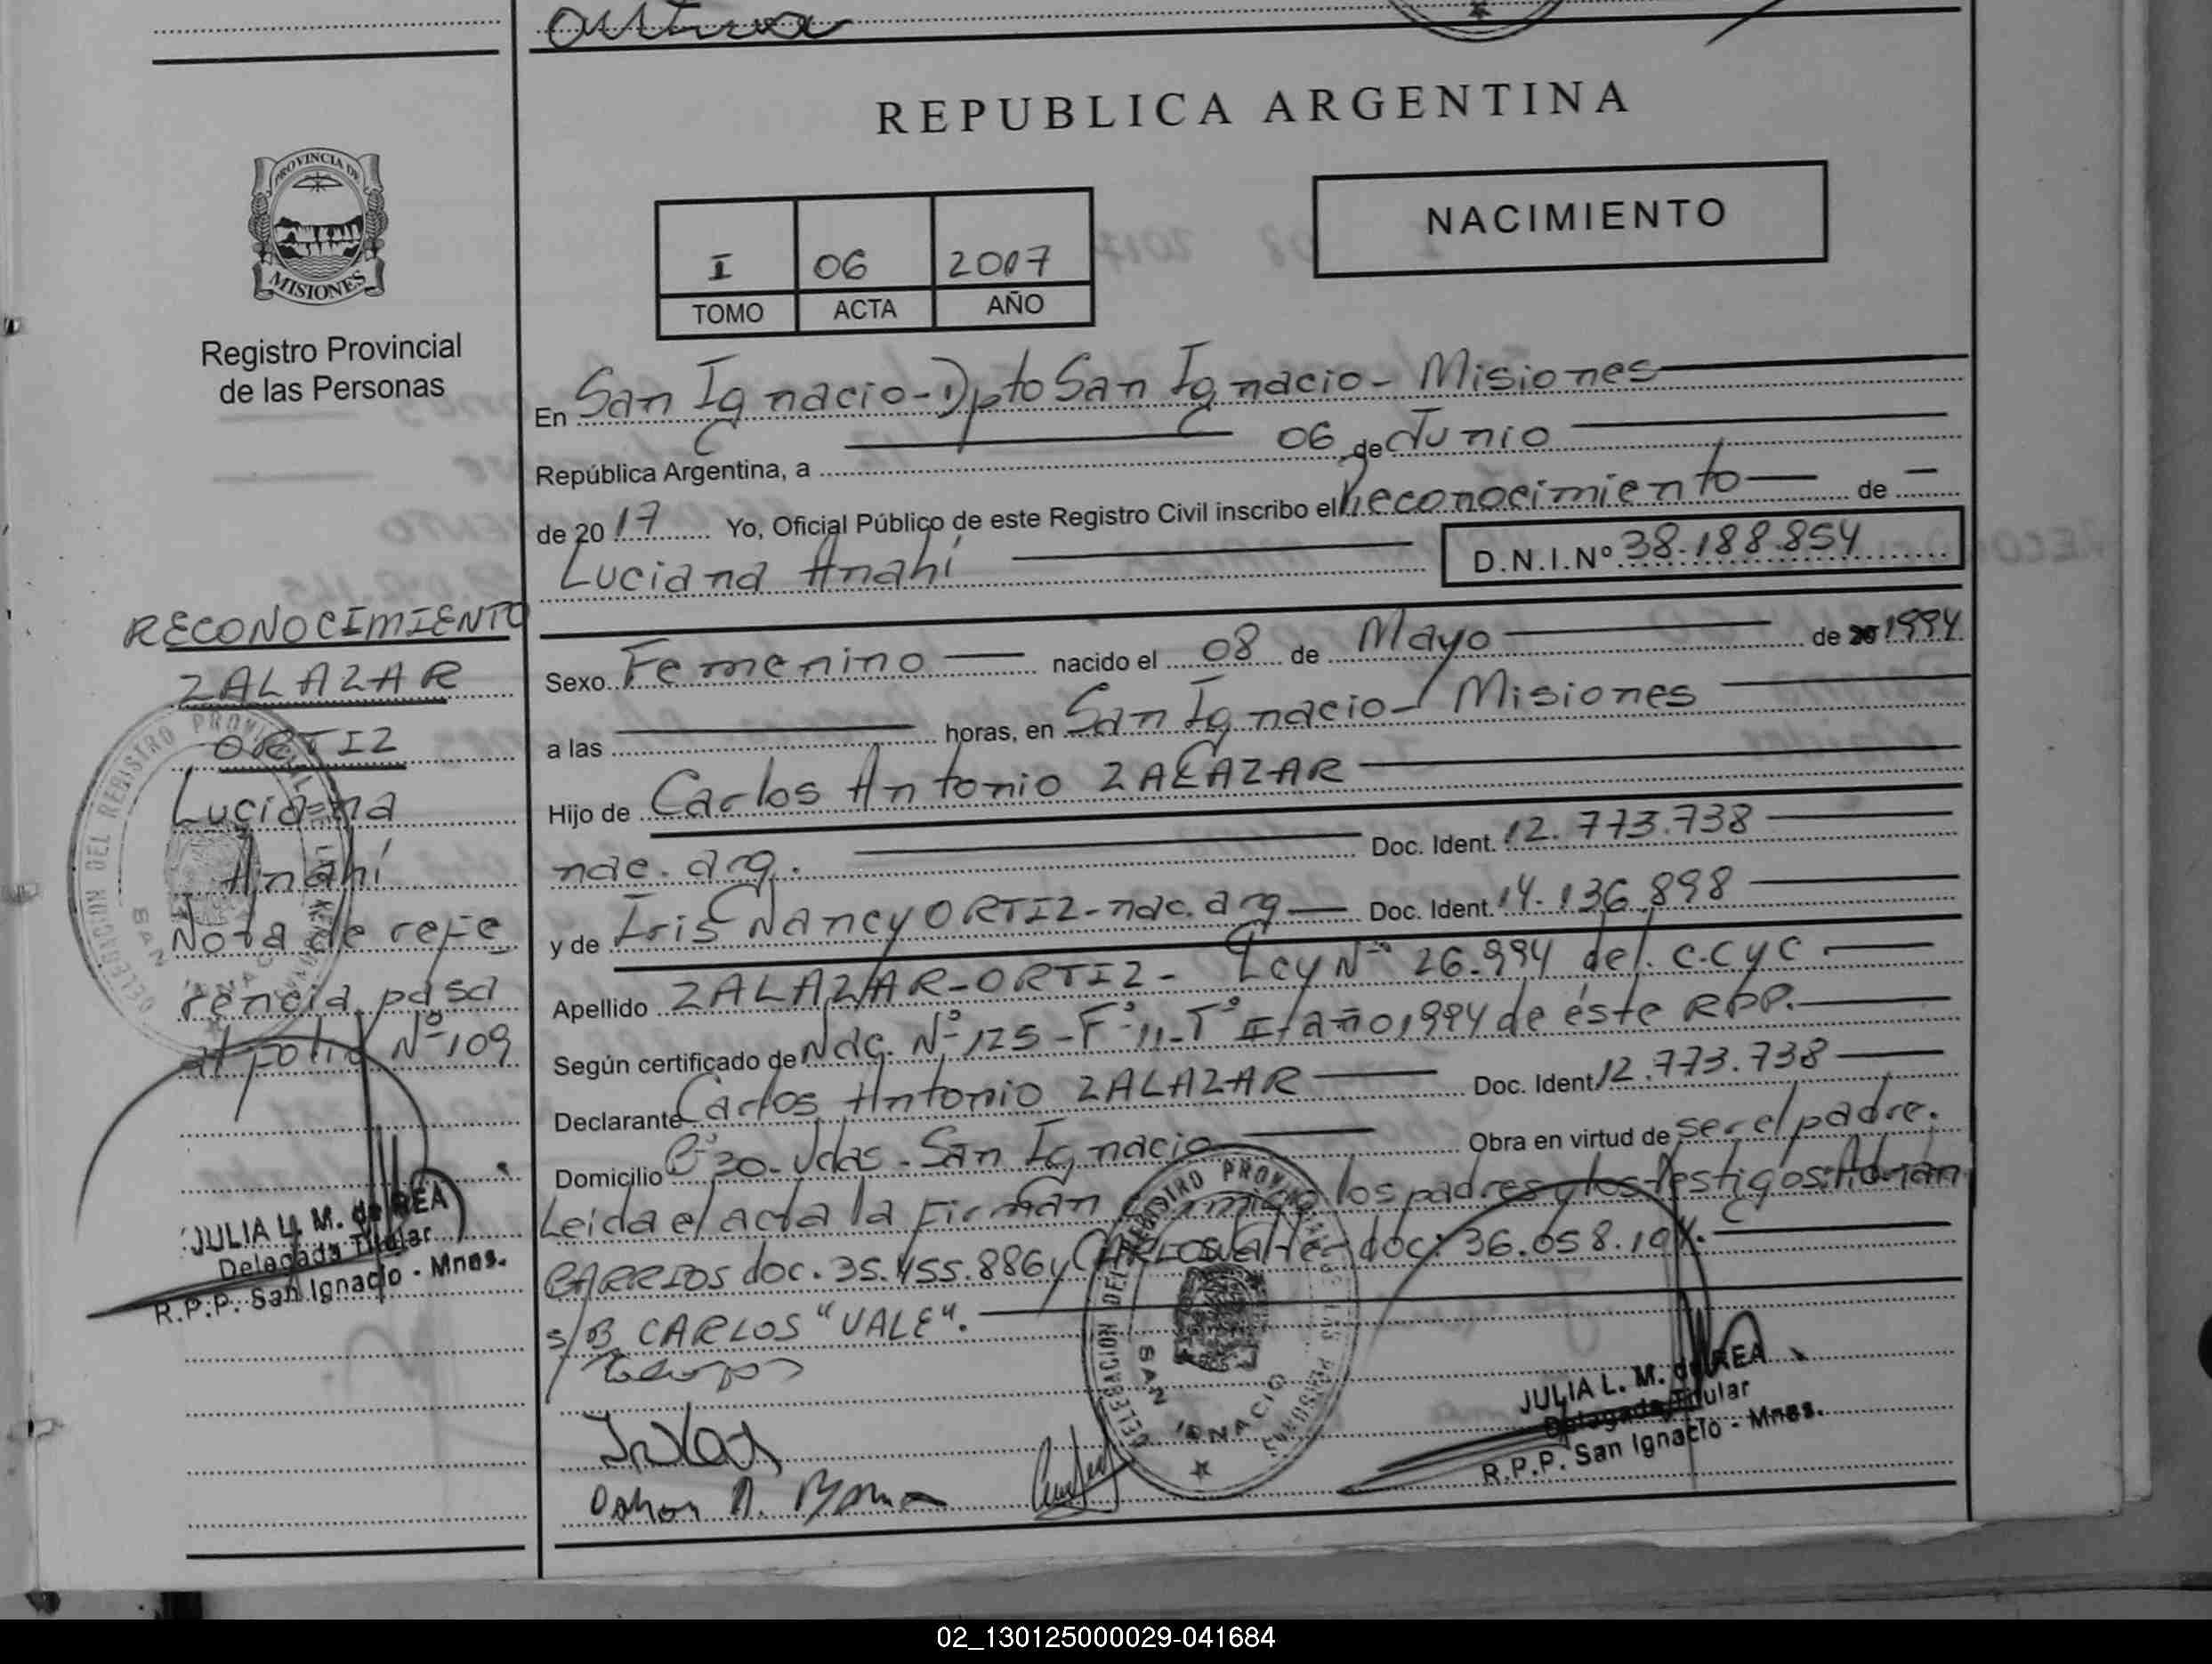 REPUBLICA ARGENTINA
PROVINCIA DE
MISIONES
Registro Provincial
de las Personas
NACIMIENTO
I 06 2017
TOMO ACTA AÑO
En San Ignacio-Dpto San Ignacio- Misiones
República Argentina, a 06 de Junio
de 20 17 Yo, Oficial Público de este Registro Civil inscribo el Reconocimiento de
Luciana Anahí D.N.I.Nº 38.188.854
Sexo Femenino nacido el 08 de Mayo de 20 1994
a las horas, en San Ignacio- Misiones
Hijo de Carlos Antonio ZALAZAR
nac. arg. Doc. Ident. 12.773.738
y de Iris Nancy ORTIZ-nac. arg Doc. Ident. 14.136.898
Apellido ZALAZAR-ORTIZ- Ley Nº 26.994 del. C.C y C
Según certificado de Nac. Nº 125-Fº 11-Tº II-año 1994 de éste RPP.
Declarante Carlos Antonio ZALAZAR Doc. Ident 12.773.738
Domicilio Bº 30-Vdas-San Ignacio Obra en virtud de ser el padre.
Leída el acta la Firman conmigo los padres y los testigos: Adrián
BARRIOS doc. 35.455.886 y doc: 36.058.
s/B CARLOS "VALE".
RECONOCIMIENTO
ZALAZAR
ORTIZ
Lucia=na
Anahí
Nota de refe
rencia pasa
al folio Nº 109
JULIA L. M. de REA
Delegada Titular
R.P.P. San Ignacio - Mnes.
DELEGACION DEL REGISTRO PROVINCIAL DE LAS PERSONAS
SAN IGNACIO
DELEGACION DEL REGISTRO PROVINCIAL DE LAS PERSONAS
SAN IGNACIO
JULIA L. M. de REA
Delegada Titular
R.P.P. San Ignacio - Mnes.
02_130125000029-041684